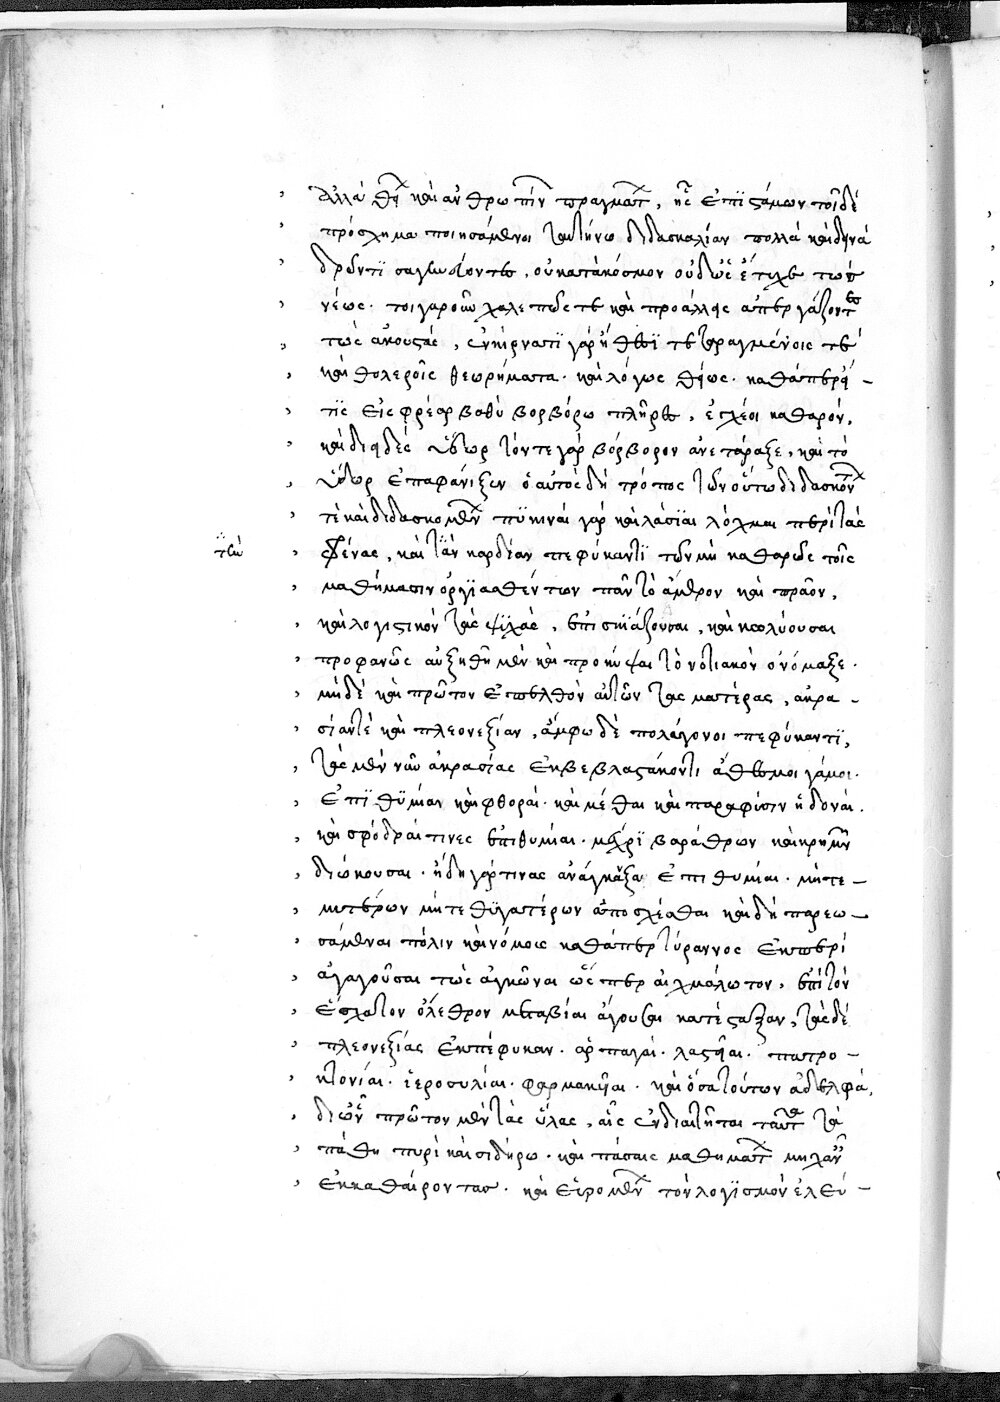 ἀλλὰ θείων καὶ ἀνθρωπίνων πραγμάτων, ἦς ἐπιστάμων τοὶ δὲ
πρόσχημα ποιησάμενοι ταυτήνω διδασκαλίαν πολλὰ καὶ δεινὰ
δρῶντι σαγηνεύοντες, οὐ κατὰ κόσμον οὐδ' ὡς ἔτυχε τὼς
νέως. τοιγαροῦν χαλεπώς τε καὶ προάλλης ἀπεργάζοντες
τὼς ἀκουστάς, ἐγκίρναντι γὰρ ἤθεσι τεταραγμένοις τε
καὶ θολεροῖς θεωρήματα. καὶ λόγως θείως. καθάπερ εἴ
τις εἰς φρέαρ βαθὺ βορβόρω πλῆρες, ἐγχέοι καθαρόν,
καὶ διειδὲς ὕδωρ τόν τε γὰρ βόρβορον ἀνετάραξε, καὶ τὸ
ὕδωρ ἐπαφάνιξεν ὁ αὐτὸς δὴ τρόπος τῶν οὕτω διδασκόντων
τε καὶ διδασκομένων πυκιναὶ γὰρ καὶ λάσιαι λόχμαι περὶ τὰς
φρένας, καὶ τὰν καρδίαν πεφύκαντι τῶν μὴ καθαρῶς τοῖς
μαθήμασιν ὀργιασθέντων πᾶν τὸ ἅμερον καὶ πρᾶον,
καὶ λογιστικὸν τᾶς ψυχᾶς, ἐπισκιάζουσαι, καὶ κωλύουσαι
προφανῶς αὐξηθῆμεν καὶ προκύψαι τὸ νοτιακὸν ὀνόμαξε.
μηδὲ καὶ πρῶτον ἐπελθὸν αὐτῶν τὰς ματέρας, ἀκρα-
σίαν τὲ καὶ πλεονεξίαν, ἄμφω δὲ πολύγονοι πεφύκαντι,
τᾶς μὲν νῦν ἀκρασίας ἐκβεβλαστάκοντι ἄθεσμοι γάμοι.
ἐπιθυμίαν καὶ φθοραί. καὶ μέθαι καὶ παραφύσιν ἡδοναί.
καὶ σφοδραί τινες ἐπιθυμίαι. μέχρι βαράθρων καὶ κρημνῶν
διώκουσαι. ἤδη γάρ τινας ἀνάγκαξα ἐπιθυμίαι. μήτε-
ματέρων μήτε θυγατέρων ἀποσχέσθαι καὶ δὴ παρεω-
σάμεναι πόλιν καὶ νόμοις καθάπερ τύραννος ἐκπερι
αγαγοῦσαι τὼς ἀγκῶναι ὥσπερ αἰχμάλωτον, ἐπὶ τὸν
ἔσχατον ὄλεθρον μετὰ βίαι ἄγουσαι κατέσταξαν, τᾶς δὲ
πλεονεξίας ἐκπέφυκαν. ἁρπαγαί. λαστῆαι. πατρο-
κτονίαι. ἱεροσυλίαι. φαρμακῆαι. καὶ ὅσα τούτων ἀδελφά,
δὶ ὧν πρῶτον μὲν τὰς ὕλας, αἷς ἐνδιαιτῆται ταῦτα τὰ
πάθη πυρὶ καὶ σιδήρω. καὶ πάσαις μαθημάτων μηχαναῖς
ἐκκαθαίροντας. καὶ εἰρομένων τὸν λογισμὸν ἐλευ-
τῶν